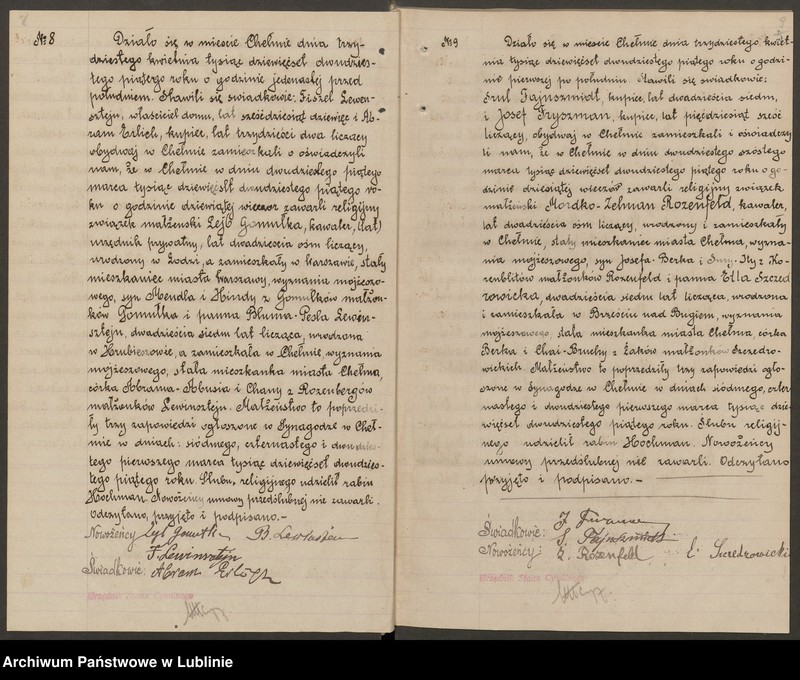 8
№ 8
Działo się w mieście Chełmie dnia trzy-
dziestego kwietnia tysiąc dziewięćset dwudzies-
tego piątego roku o godzinie jedenastej przed
południem. Stawili się świadkowie: Fiszel Lewen-
sztejn, właściciel domu, lat sześćdziesiąt dziewięć i Ab-
ram Erlich, kupiec, lat trzydzieści dwa liczący
obydwaj w Chełmie zamieszkali i oświadczyli
nam, że w Chełmie w dniu dwudziestego piątego
marca tysiąc dziewięćset dwudziestego piątego ro-
ku o godzinie dziewiątej wieczor zawarli religijny
związek małżeński Lejb Gomułka, kawaler, (lat)
urzędnik prywatny, lat dwadzieścia ośm liczący,
urodzony w Łodzi, a zamieszkały w Warszawie, stały
mieszkaniec miasta Warszawy, wyznania mojżeszo-
wego, syn Mendla i Hindy z Gomułków małżon-
ków Gomułka i panna Bluma-Pesla Lewen-
sztejn, dwadzieścia siedm lat licząca, urodzona
w Hrubieszowie, a zamieszkała w Chełmie, wyznania
mojżeszowego, stała mieszkanka miasta Chełma,
córka Abrama-Abusia i Chany z Rozenbergów
małżonków Lewinsztejn. Małżeństwo to poprzedzi-
ły trzy zapowiedzi ogłoszone w Synagodze w Cheł-
mie w dniach: siódmego, czternastego i dwudzies-
tego pierwszego marca tysiąc dziewięćset dwudzies-
tego piątego roku. Ślubu, religijnego udzielił rabin
Hochman. Nowożeńcy umowy przedślubnej nie zawarli.
Odczytano, przyjęto i podpisano.-
Nowożeńcy
F. Lewinsztejn
Świadkowie: Abram Erlich
Urzędnik Stanu Cywilnego
9
№ 9
Działo się w mieście Chełmie dnia trzydziestego kwiet-
nia tysiąc dziewięćset dwudziestego piątego roku o godzi-
nie pierwszej po południu. Stawili się świadkowie:
Srul Fajnszmidt, kupiec, lat dwadzieścia siedm,
i Josef Fryszman, kupiec, lat pięćdziesiąt sześć
liczący, obydwaj w Chełmie zamieszkali i oświadczy-
li nam, że w Chełmie w dniu dwudziestego szóstego
marca tysiąc dziewięćset dwudziestego piątego roku o go-
dzinie dziesiątej wieczór zawarli religijny związek
małżeński Mordko-Zelman Rozenfeld, kawaler,
lat dwadzieścia ośm liczący, urodzony i zamieszkały
w Chełmie, stały mieszkaniec miasta Chełma, wyzna-
nia mojżeszowego, syn Josefa-Berka i Ity z Ko-
renblitów małżonków Rozenfeld i panna Etla Szczed
rowicka, dwadzieścia siedm lat licząca, urodzona
i zamieszkała w Brześciu nad Bugiem, wyznania
mojżeszowego, stała mieszkanka miasta Chełma, córka
Berka i Chai-Bruchy z Żaków małżonków Szczedro-
wickich. Małżeństwo to poprzedziły trzy zapowiedzi ogło-
szone w Synagodze w Chełmie w dniach siódmego, czter-
nastego i dwudziestego pierwszego marca tysiąc dzie-
więćset dwudziestego piątego roku. Ślubu religij-
nego udzielił rabin Hochman. Nowożeńcy
umowy przedślubnej nie zawarli. Odczytano
przyjęto i podpisano.-
Świadkowie:
S. Fajnszmidt
Nowożeńcy: Z. Rozenfeld E. Szczedrowicki
Urzędnik Stanu Cywilnego
Archiwum Państwowe w Lublinie